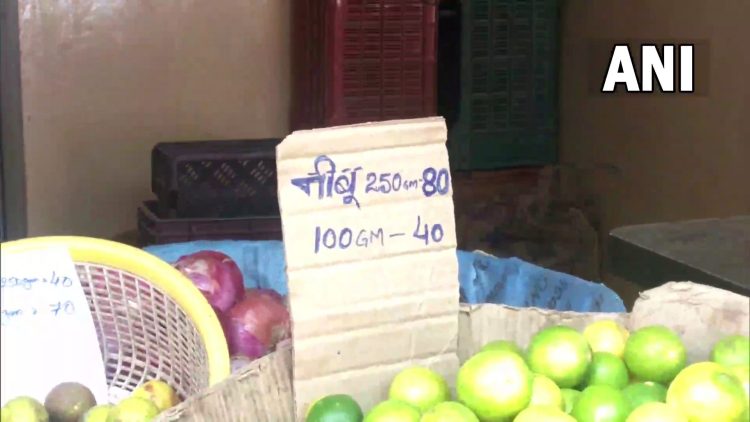 ANI
नीबू 250GM-80
100GM - 40
40
70